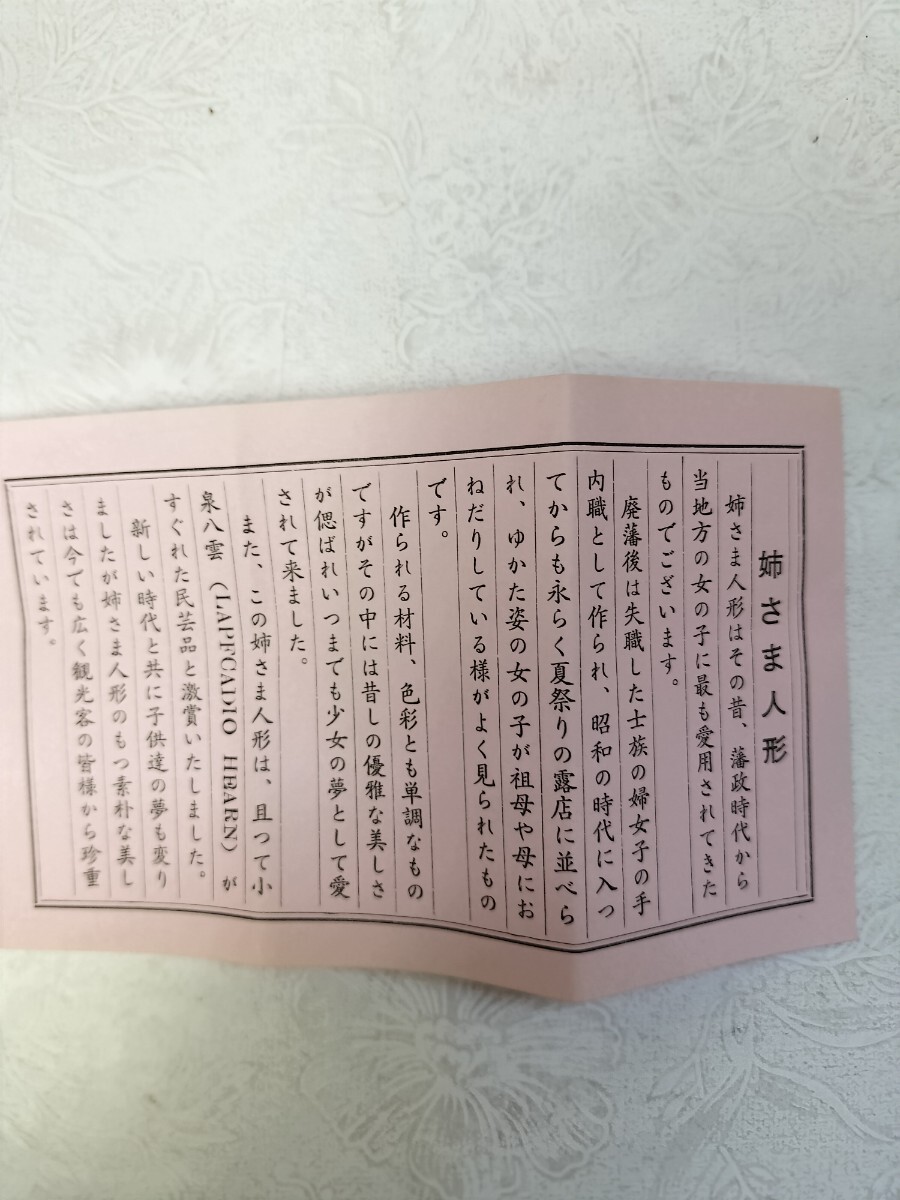 姉さま人形
姉さま人形はその昔、藩政時代から
当地方の女の子に最も愛用されてきた
ものでございます。
廃藩後は失職した士族の婦女子の手
内職として作られ、昭和の時代に入っ
てからも永らく夏祭りの露店に並べら
れ、ゆかた姿の女の子が祖母や母にお
ねだりしている様がよく見られたもの
です。
作られる材料、色彩とも単調なもの
ですがその中には昔しの優雅な美しさ
が偲ばれいつまでも少女の夢として愛
されて来ました。
また、この姉さま人形は、且つて小
泉八雲(LAFCADIO HEARN)が
すぐれた民芸品と激賞いたしました。
新しい時代と共に子供達の夢も変り
ましたが姉さま人形のもつ素朴な美し
さは今でも広く観光客の皆様から珍重
されています。